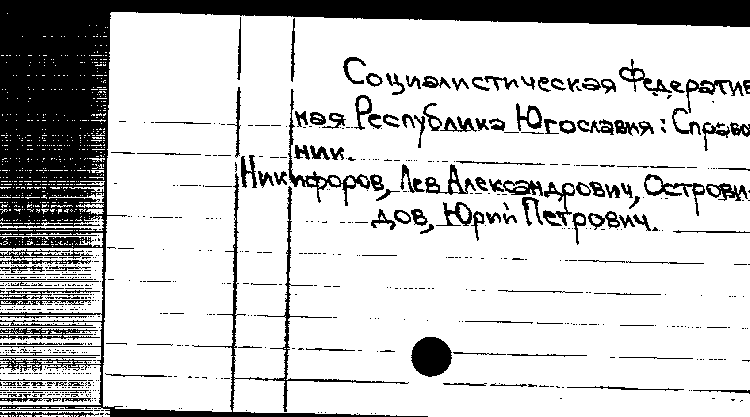 Социалистическая Федератив
ная Республика Югославия: Справоч
ник.
Никифоров, Лев Александрович, Острови-
дов, Юрий Петрович.